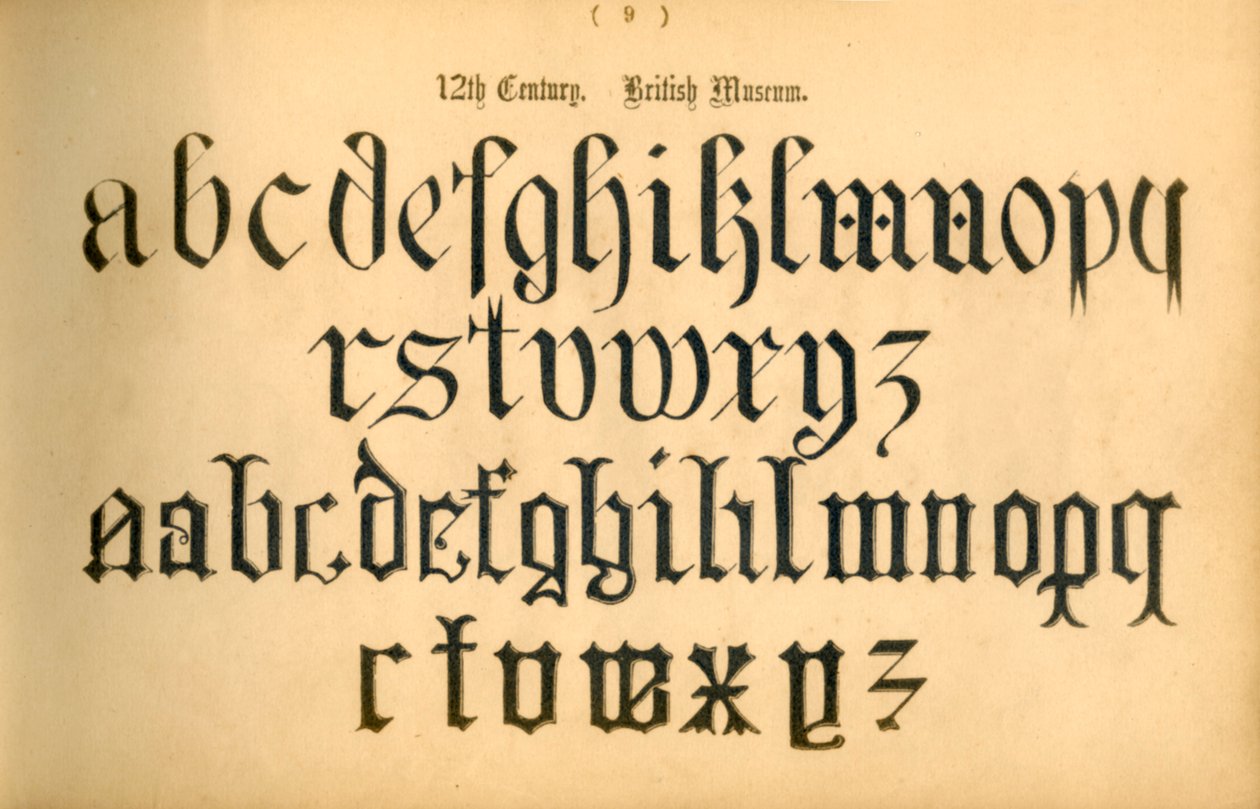 ( 9 )
12th Century. British Museum.
a b c d e f g h i k l m n o p q
r s t v w x y z
a a b c d e f g h i k l m n o p q
r t v w x y z